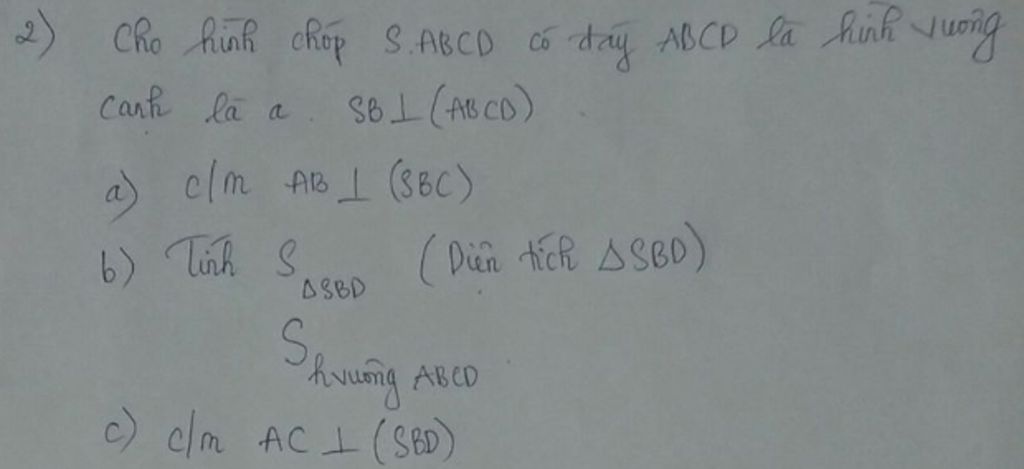 2) Cho hình chóp S.ABCD có đáy ABCD là hình vuông
cạnh là a. SB ⊥ (ABCD).
a) c/m AB ⊥ (SBC)
b) Tính S ΔSBD (Diện tích ΔSBD)
S hvuông ABCD
c) c/m AC ⊥ (SBD)